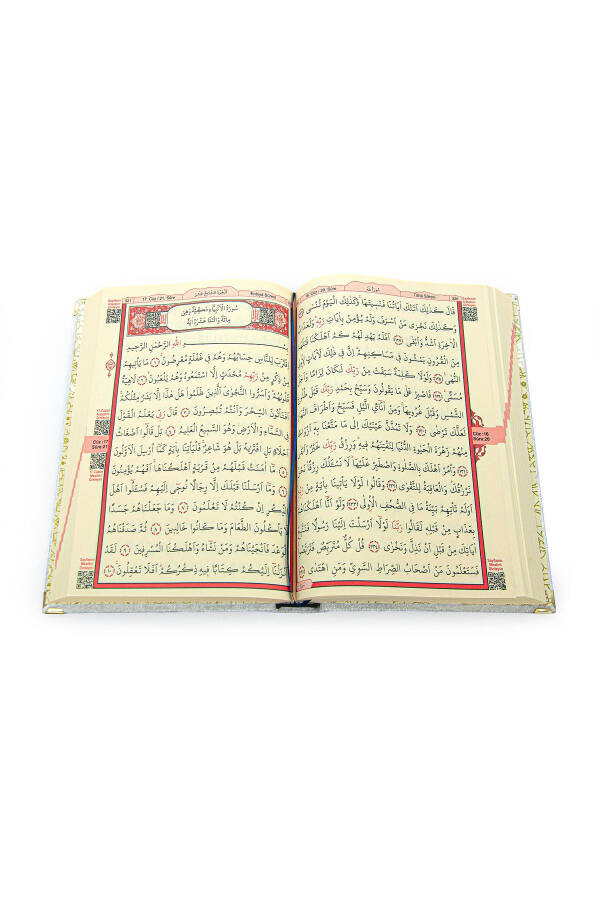 320 Tâhâ Sûresi سُورَةُ طٰهٰ 16. Cüz / 20. Sûre
قَالَ كَذٰلِكَ اَتَتْكَ اٰيَاتُنَا فَنَسِيتَهَا وَكَذٰلِكَ الْيَوْمَ تُنْسٰى
وَكَذٰلِكَ نَجْزِى مَنْ اَسْرَفَ وَلَمْ يُؤْمِنْ بِاٰيَاتِ رَبِّهِ وَلَعَذَابُ
الْاٰخِرَةِ اَشَدُّ وَاَبْقٰى ﴿١٢٧﴾ اَفَلَمْ يَهْدِ لَهُمْ كَمْ اَهْلَكْنَا قَبْلَهُمْ
مِنَ الْقُرُونِ يَمْشُونَ فِى مَسَاكِنِهِمْ اِنَّ فِى ذٰلِكَ لَاٰيَاتٍ لِاُولِى
النُّهٰى ﴿١٢٨﴾ وَلَوْلَا كَلِمَةٌ سَبَقَتْ مِنْ رَبِّكَ لَكَانَ لِزَامًا وَاَجَلٌ
مُسَمًّى ﴿١٢٩﴾ فَاصْبِرْ عَلٰى مَا يَقُولُونَ وَسَبِّحْ بِحَمْدِ رَبِّكَ قَبْلَ طُلُوعِ
الشَّمْسِ وَقَبْلَ غُرُوبِهَا وَمِنْ اٰنَائِ الَّيْلِ فَسَبِّحْ وَاَطْرَافَ النَّهَارِ
لَعَلَّكَ تَرْضٰى ﴿١٣٠﴾ وَلَا تَمُدَّنَّ عَيْنَيْكَ اِلٰى مَا مَتَّعْنَا بِهِ اَزْوَاجًا
مِنْهُمْ زَهْرَةَ الْحَيٰوةِ الدُّنْيَا لِنَفْتِنَهُمْ فِيهِ وَرِزْقُ رَبِّكَ خَيْرٌ وَاَبْقٰى
وَاْمُرْ اَهْلَكَ بِالصَّلٰوةِ وَاصْطَبِرْ عَلَيْهَا لَا نَسْئَلُكَ رِزْقًا نَحْنُ
نَرْزُقُكَ وَالْعَاقِبَةُ لِلتَّقْوٰى ﴿١٣٢﴾ وَقَالُوا لَوْلَا يَاْتِينَا بِاٰيَةٍ مِنْ رَبِّهِ
اَوَلَمْ تَاْتِهِمْ بَيِّنَةُ مَا فِى الصُّحُفِ الْاُولٰى ﴿١٣٣﴾ وَلَوْ اَنَّا اَهْلَكْنَاهُمْ
بِعَذَابٍ مِنْ قَبْلِهِ لَقَالُوا رَبَّنَا لَوْلَا اَرْسَلْتَ اِلَيْنَا رَسُولًا فَنَتَّبِعَ
اٰيَاتِكَ مِنْ قَبْلِ اَنْ نَذِلَّ وَنَخْزٰى ﴿١٣٤﴾ قُلْ كُلٌّ مُتَرَبِّصٌ فَتَرَبَّصُوا
فَسَتَعْلَمُونَ مَنْ اَصْحَابُ الصِّرَاطِ السَّوِىِّ وَمَنِ اهْتَدٰى
Cüz :16
Sûre:20
Enbiyâ Sûresi 17. Cüz / 21. Sûre 321
سُورَةُ الْاَنْبِيَاءِ مَكِّيَّةٌ وَهِىَ
مِائَةٌ وَاثْنَتَا عَشْرَةَ اٰيَةً
بِسْمِ اللّٰهِ الرَّحْمٰنِ الرَّحِيمِ
اِقْتَرَبَ لِلنَّاسِ حِسَابُهُمْ وَهُمْ فِى غَفْلَةٍ مُعْرِضُونَ ﴿١﴾ مَا يَاْتِيهِمْ
مِنْ ذِكْرٍ مِنْ رَبِّهِمْ مُحْدَثٍ اِلَّا اسْتَمَعُوهُ وَهُمْ يَلْعَبُونَ ﴿٢﴾ لَاهِيَةً
قُلُوبُهُمْ وَاَسَرُّوا النَّجْوٰى الَّذِينَ ظَلَمُوا هَلْ هٰذَا اِلَّا بَشَرٌ مِثْلُكُمْ
اَفَتَاْتُونَ السِّحْرَ وَاَنْتُمْ تُبْصِرُونَ ﴿٣﴾ قَالَ رَبِّى يَعْلَمُ الْقَوْلَ
فِى السَّمَاءِ وَالْاَرْضِ وَهُوَ السَّمِيعُ الْعَلِيمُ ﴿٤﴾ بَلْ قَالُوا اَضْغَاثُ
اَحْلَامٍ بَلِ افْتَرٰيهُ بَلْ هُوَ شَاعِرٌ فَلْيَاْتِنَا بِاٰيَةٍ كَمَا اُرْسِلَ الْاَوَّلُونَ
﴿٥﴾ مَا اٰمَنَتْ قَبْلَهُمْ مِنْ قَرْيَةٍ اَهْلَكْنَاهَا اَفَهُمْ يُؤْمِنُونَ
﴿٦﴾ وَمَا اَرْسَلْنَا قَبْلَكَ اِلَّا رِجَالًا نُوحِى اِلَيْهِمْ فَسْئَلُوا اَهْلَ
الذِّكْرِ اِنْ كُنْتُمْ لَا تَعْلَمُونَ ﴿٧﴾ وَمَا جَعَلْنَاهُمْ جَسَدًا
لَا يَاْكُلُونَ الطَّعَامَ وَمَا كَانُوا خَالِدِينَ ﴿٨﴾ ثُمَّ صَدَقْنَاهُمُ
الْوَعْدَ فَاَنْجَيْنَاهُمْ وَمَنْ نَشَاءُ وَاَهْلَكْنَا الْمُسْرِفِينَ ﴿٩﴾ لَقَدْ
اَنْزَلْنَا اِلَيْكُمْ كِتَابًا فِيهِ ذِكْرُكُمْ اَفَلَا تَعْقِلُونَ ﴿١٠﴾
Cüz :17
Sûre:21